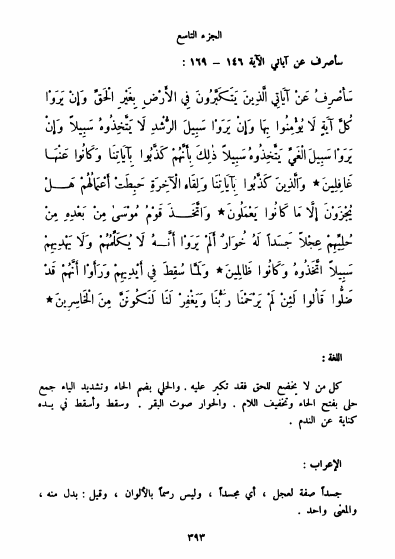 الجزء التاسع
سأصرف عن آياتي الآية ١٤٦ – ١٦٩ :
سَأَصْرِفُ عَنْ آيَاتِيَ الَّذِينَ يَتَكَبَّرُونَ فِي الْأَرْضِ بِغَيْرِ الْحَقِّ وَإِنْ يَرَوْا
كُلَّ آيَةٍ لَا يُؤْمِنُوا بِهَا وَإِنْ يَرَوْا سَبِيلَ الرُّشْدِ لَا يَتَّخِذُوهُ سَبِيلاً وَإِنْ
يَرَوْا سَبِيلَ الْغَيِّ يَتَّخِذُوهُ سَبِيلاً ذَلِكَ بِأَنَّهُمْ كَذَّبُوا بِآيَاتِنَا وَكَانُوا عَنْهَا
غَافِلِينَ * وَالَّذِينَ كَذَّبُوا بِآيَاتِنَا وَلِقَاءِ الْآخِرَةِ حَبِطَتْ أَعْمَالُهُمْ هَلْ
يُجْزَوْنَ إِلَّا مَا كَانُوا يَعْمَلُونَ * وَاتَّخَذَ قَوْمُ مُوسَى مِنْ بَعْدِهِ مِنْ
حُلِيِّهِمْ عِجْلاً جَسَداً لَهُ خُوَارٌ أَلَمْ يَرَوْا أَنَّهُ لَا يُكَلِّمُهُمْ وَلَا يَهْدِيهِمْ
سَبِيلاً اتَّخَذُوهُ وَكَانُوا ظَالِمِينَ * وَلَمَّا سُقِطَ فِي أَيْدِيهِمْ وَرَأَوْا أَنَّهُمْ قَدْ
ضَلُّوا قَالُوا لَئِنْ لَمْ يَرْحَمْنَا رَبُّنَا وَيَغْفِرْ لَنَا لَنَكُونَنَّ مِنَ الْخَاسِرِينَ *
اللغة :
كل من لا يخضع للحق فقد تكبر عليه . والحلي بضم الحاء وتشديد الياء جمع
حلى بفتح الحاء وتخفيف اللام . والخوار صوت البقر . وسقط وأسقط في يده
كناية عن الندم .
الإعراب :
جسداً صفة لعجل ، أي مجسداً ، وليس رسماً بالألوان ، وقيل : بدل منه ،
والمعنى واحد .
٣٩٣